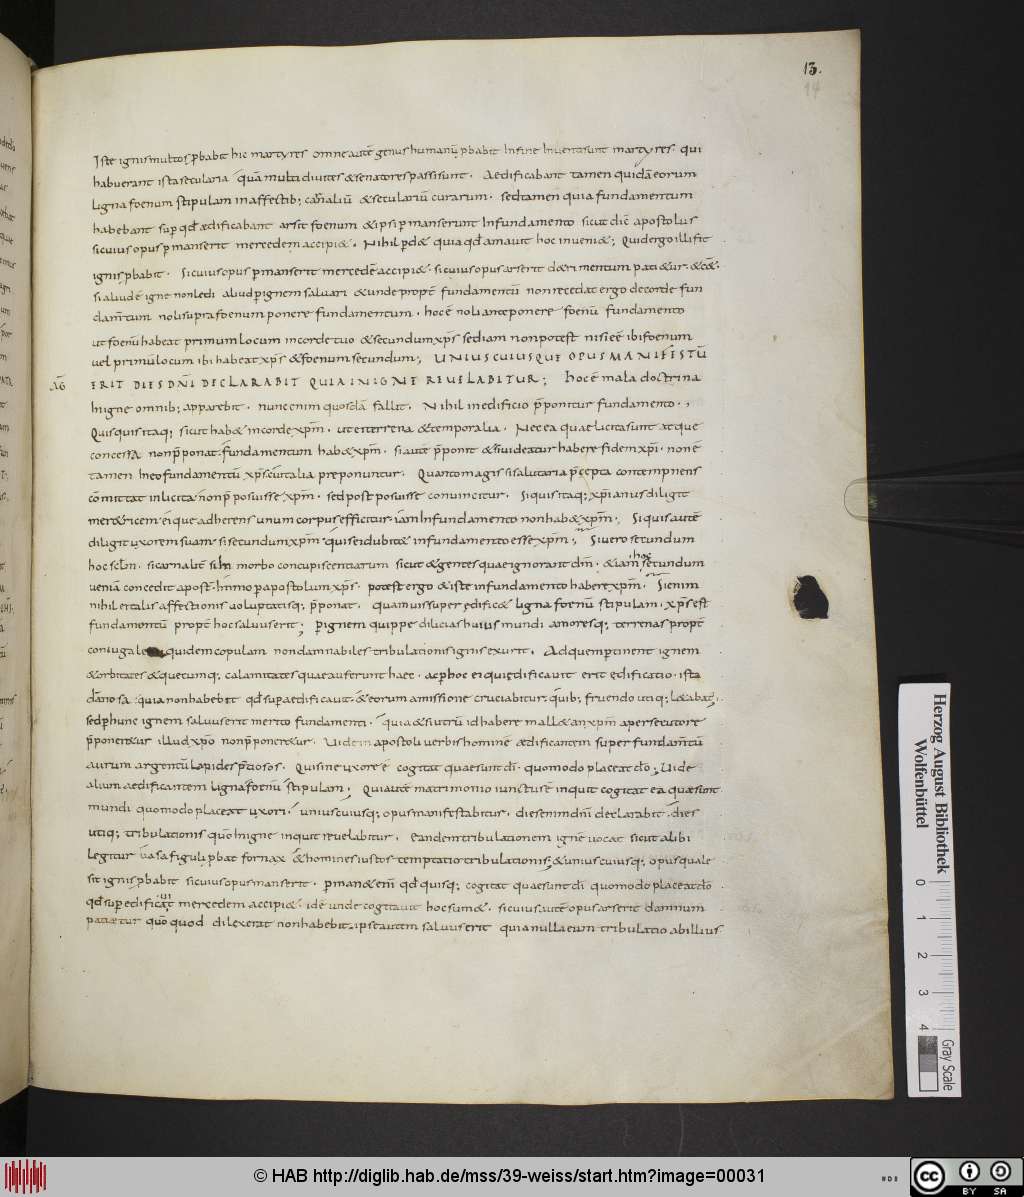 13.
14
Iste ignis multos ꝓbabit hic martyres omne autē genus humanū ꝓbabit In fine Inventi sunt martyres. qui
habuerant ista secularia quā multi divites & senatores passi sunt. Aedificabant tamen quidā eorum
ligna foenum stipulam in affectib; carnaliū & seculariū curarum. sed tamen quia fundamentum
habebant sup qđ ædificabant arsit foenum & ipsi ꝑmanserunt In fundamento sicut dic̄ apostolus
si cuius opus ꝑmanserit mercedem accipi&. Nihil ꝑd& quia qđ amavit hoc inveni&; Quid ergo illi fit
ignis ꝓbabit. si cuius opus ꝑmanserit mercedē accipi&. si cuius opus arserit detrimentum pati&ur. & c&.
si aliud ē igne non ledi aliud ꝑ ignem salvari & unde propt̄ fundamentū non recedat ergo de corde fun
damtum noli supra foenum ponere fundamentum. hoc ē noli anteponere foenū fundamento
ut foenū habeat primum locum in corde tuo & secundum xp̄s sed iam non potest nisi eē ibi foenum
vel primū locum ibi habeat xp̄s & foenum secundum; UNIUSCUIUSQUE OPUS MANIFESTŪ
AḠ ERIT DIES DN̄I DECLARABIT QUIA IN IGNE REVELABITUR; hoc ē mala doctrina
In igne omnib; apparebit. nunc enim quosdā fallit. Nihil in edificio p̄ponitur fundamento.,
Quisquis itaq; sicut hab& in corde xp̄m. ut ei terrena & temporalia. Nec ea quae licita sunt atque
concessa non p̄ponat. fundamentum hab& xp̄m. si autē p̄ponit & si videatur habere fidem xp̄i. non ē
tamen In eo fundamentū xp̄s cui talia preponuntur. Quanto magis si salutaria p̄cepta contempnens
cōmittat inlicita non p̄posuisse xp̄m. sed postposuisse convincitur. Si quis itaq; xp̄ianus diligit
mer&ricem ei que adherens unum corpus efficitur. iam In fundamento non hab& xp̄m; Si quis autē
diligit uxorem suam. si secundum xp̄m quis ei dubit& in fundamento esse xp̄m; Si vero secundum
hoc sclm. si carnalit̄ si In morbo concupiscentiarum sicut & gentes quae ignorant dm̄. & iam hoc secundum
veniā concedit apost. Immo ꝑ apostolum xp̄s. potest ergo & iste in fundamento habere xp̄m. Si enim
nihil ei talis affectionis voluptatisq; p̄ponat. quamvis super edific& ligna foenū stipulam. xp̄s est
fundamentū propt̄ hoc salvus erit; ꝑ ignem quippe dilicias huius mundi amoresq; terrenas propt̄
coniugale quidem copulam non damnabiles tribulationis ignis exurit. Ad quem ꝑtinent ignem
& orbitates & quecumq; calamitates quae auferunt haec. ac ꝑ hoc ei qui edificavit erit edificatio. ista
dānosa. quia non habebit qđ sup aedificavit. & eorum amissione cruciabitur. quib; fruendo utiq; l&abat;
sed ꝑ hunc ignem salvus erit merito fundamenti. quia & si utrū id habere mall& an xp̄m a persecutore
p̄poner&ur illud xp̄o non p̄poner&ur. Vide in apostoli verbis hominē ædificantem super fundam̄tū
aurum argentū lapides p̄ciosos. Qui sine uxore ē cogitat quae sunt dī. quomodo placeat do; Vide
alium aedificantem ligna foenū stipulam; Qui autē matrimonio iunctus ē inquit cogitat ea quae sunt
mundi quomodo placeat uxori. uniuscuiusq; opus manifestabitur. dies enim dn̄i declarabit. dies
utiq; tribulationis quō In igne inquit revelabitur. Eandem tribulationem ignē vocat sicut alibi
legitur vasa figuli ꝓbat fornax & homines iustos temptatio tribulationis; & uniuscuiusq; opus quale
sit ignis ꝓbabit si cuius opus manserit. ꝑman& em̄ qđ quisq; cogitat quae sunt dī quomodo placeat do
qđ sup edificavit mercedem accipi&. id ē unde cogitavit hoc sum&. si cuius autē opus arserit damnum
patiætur quō quod dilexerat non habebit. ipse autem salvus erit quia nulla eum tribulatio ab illius
Herzog August Bibliothek
Wolfenbüttel
0 1 2 3 4
Gray Scale
© HAB http://diglib.hab.de/mss/39-weiss/start.htm?image=00031
cc BY SA